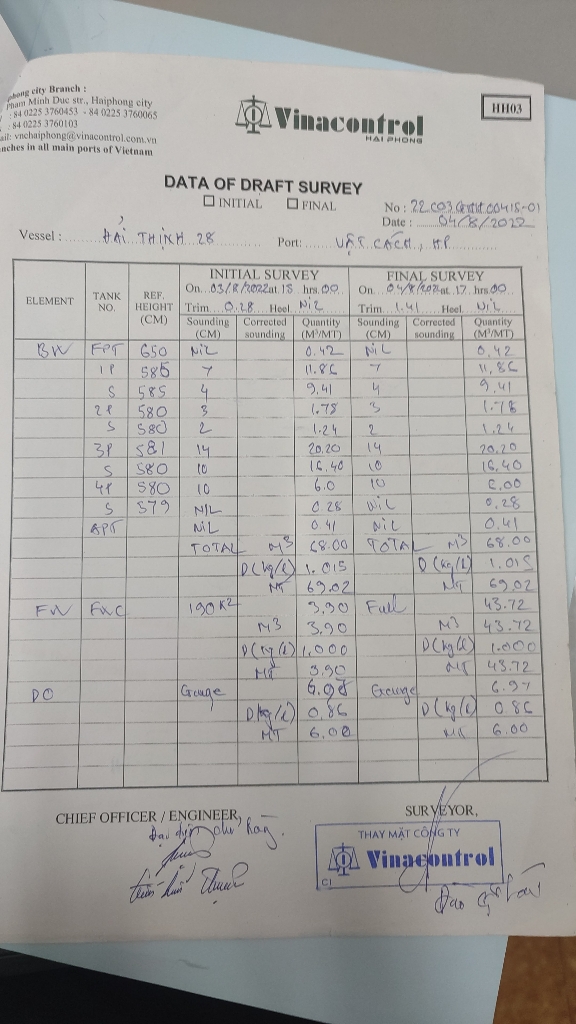 Haiphong city Branch :
Pham Minh Duc str., Haiphong city
: 84 0225 3760453 - 84 0225 3760065
: 84 0225 3760103
ail: vnchaiphong@vinacontrol.com.vn
nches in all main ports of Vietnam
Vinacontrol
HAI PHONG
HH03
DATA OF DRAFT SURVEY
☐ INITIAL ☐ FINAL
No : 22 C03 00418-01
Date : 04/8/2022
Vessel : HẢI THỊNH 28 Port: VẬT CÁCH, HP
ELEMENT TANK NO. REF. HEIGHT (CM) INITIAL SURVEY FINAL SURVEY
On 03/8/2022 at 15 hrs. 00 On 04/8/2022 at 17 hrs 00
Trim 0.28 Heel Nil Trim 1.41 Heel Nil
Sounding (CM) Corrected sounding Quantity (M³/MT) Sounding (CM) Corrected sounding Quantity (M³/MT)
BW FPT 650 Nil 0.42 Nil 0.42
1P 585 7 11.86 7 11.86
S 585 4 9.41 4 9.41
2P 580 3 1.78 3 1.78
S 580 2 1.24 2 1.24
3P 581 14 20.20 14 20.20
S 580 10 16.40 10 16.40
4P 580 10 6.0 10 6.00
S 579 NIL 0.28 Nil 0.28
APT NIL 0.41 Nil 0.41
TOTAL M3 68.00 TOTAL M3 68.00
D(kg/l) 1.015 D(kg/l) 1.015
MT 69.02 MT 69.02
FW FWC 190K2 3.90 Full 43.72
M3 3.90 M3 43.72
D(kg/l) 1.000 D(kg/l) 1.000
MT 3.90 MT 43.72
DO Gauge 6.97 Gauge 6.97
D(kg/l) 0.86 D(kg/l) 0.86
MT 6.00 MT 6.00
CHIEF OFFICER / ENGINEER, SURVEYOR,
Đại diện chủ hàng.
THAY MẶT CÔNG TY
Vinacontrol
C1